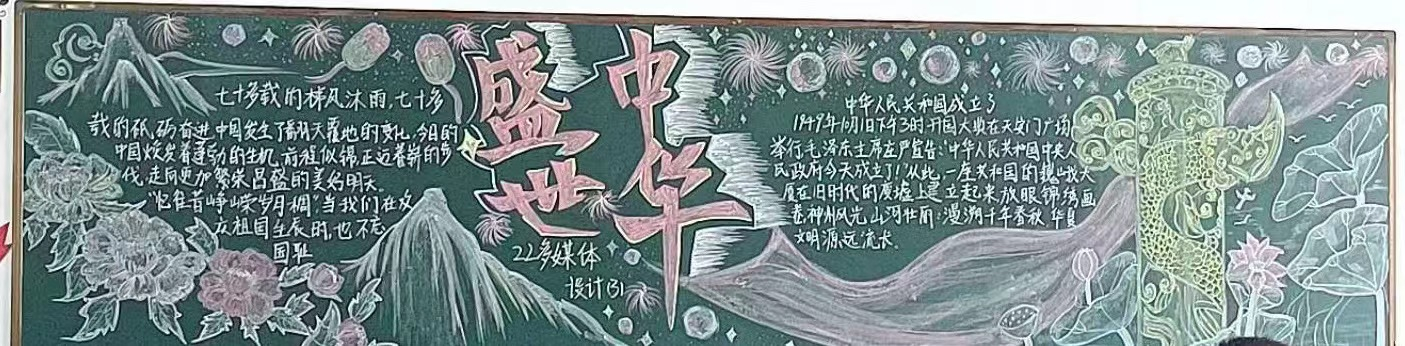 七十多载的栉风沐雨,七十多
载的砥砺奋进中国发生了翻天覆地的变化.今日的
中国焕发着蓬勃的生机,前程似锦,正迈着崭的步
伐,走向更加繁荣昌盛的美好明天。
"忆往昔峥嵘岁月稠"当我们在次
庆祖国生辰时,也不忘
国耻
盛世
中华
22多媒体
设计(3)
中华人民共和国成立了
1949年10月1日下午3时开国大典在天安门广场
举行毛泽东主席庄严宣告:"中华人民共和国中央人
民政府今天成立了!"从此,一座共和国的巍峨大
厦在旧时代的废墟上建立起来放眼锦绣画
卷神州风光,山河壮丽:漫溯千年春秋,华夏
文明源远流长。